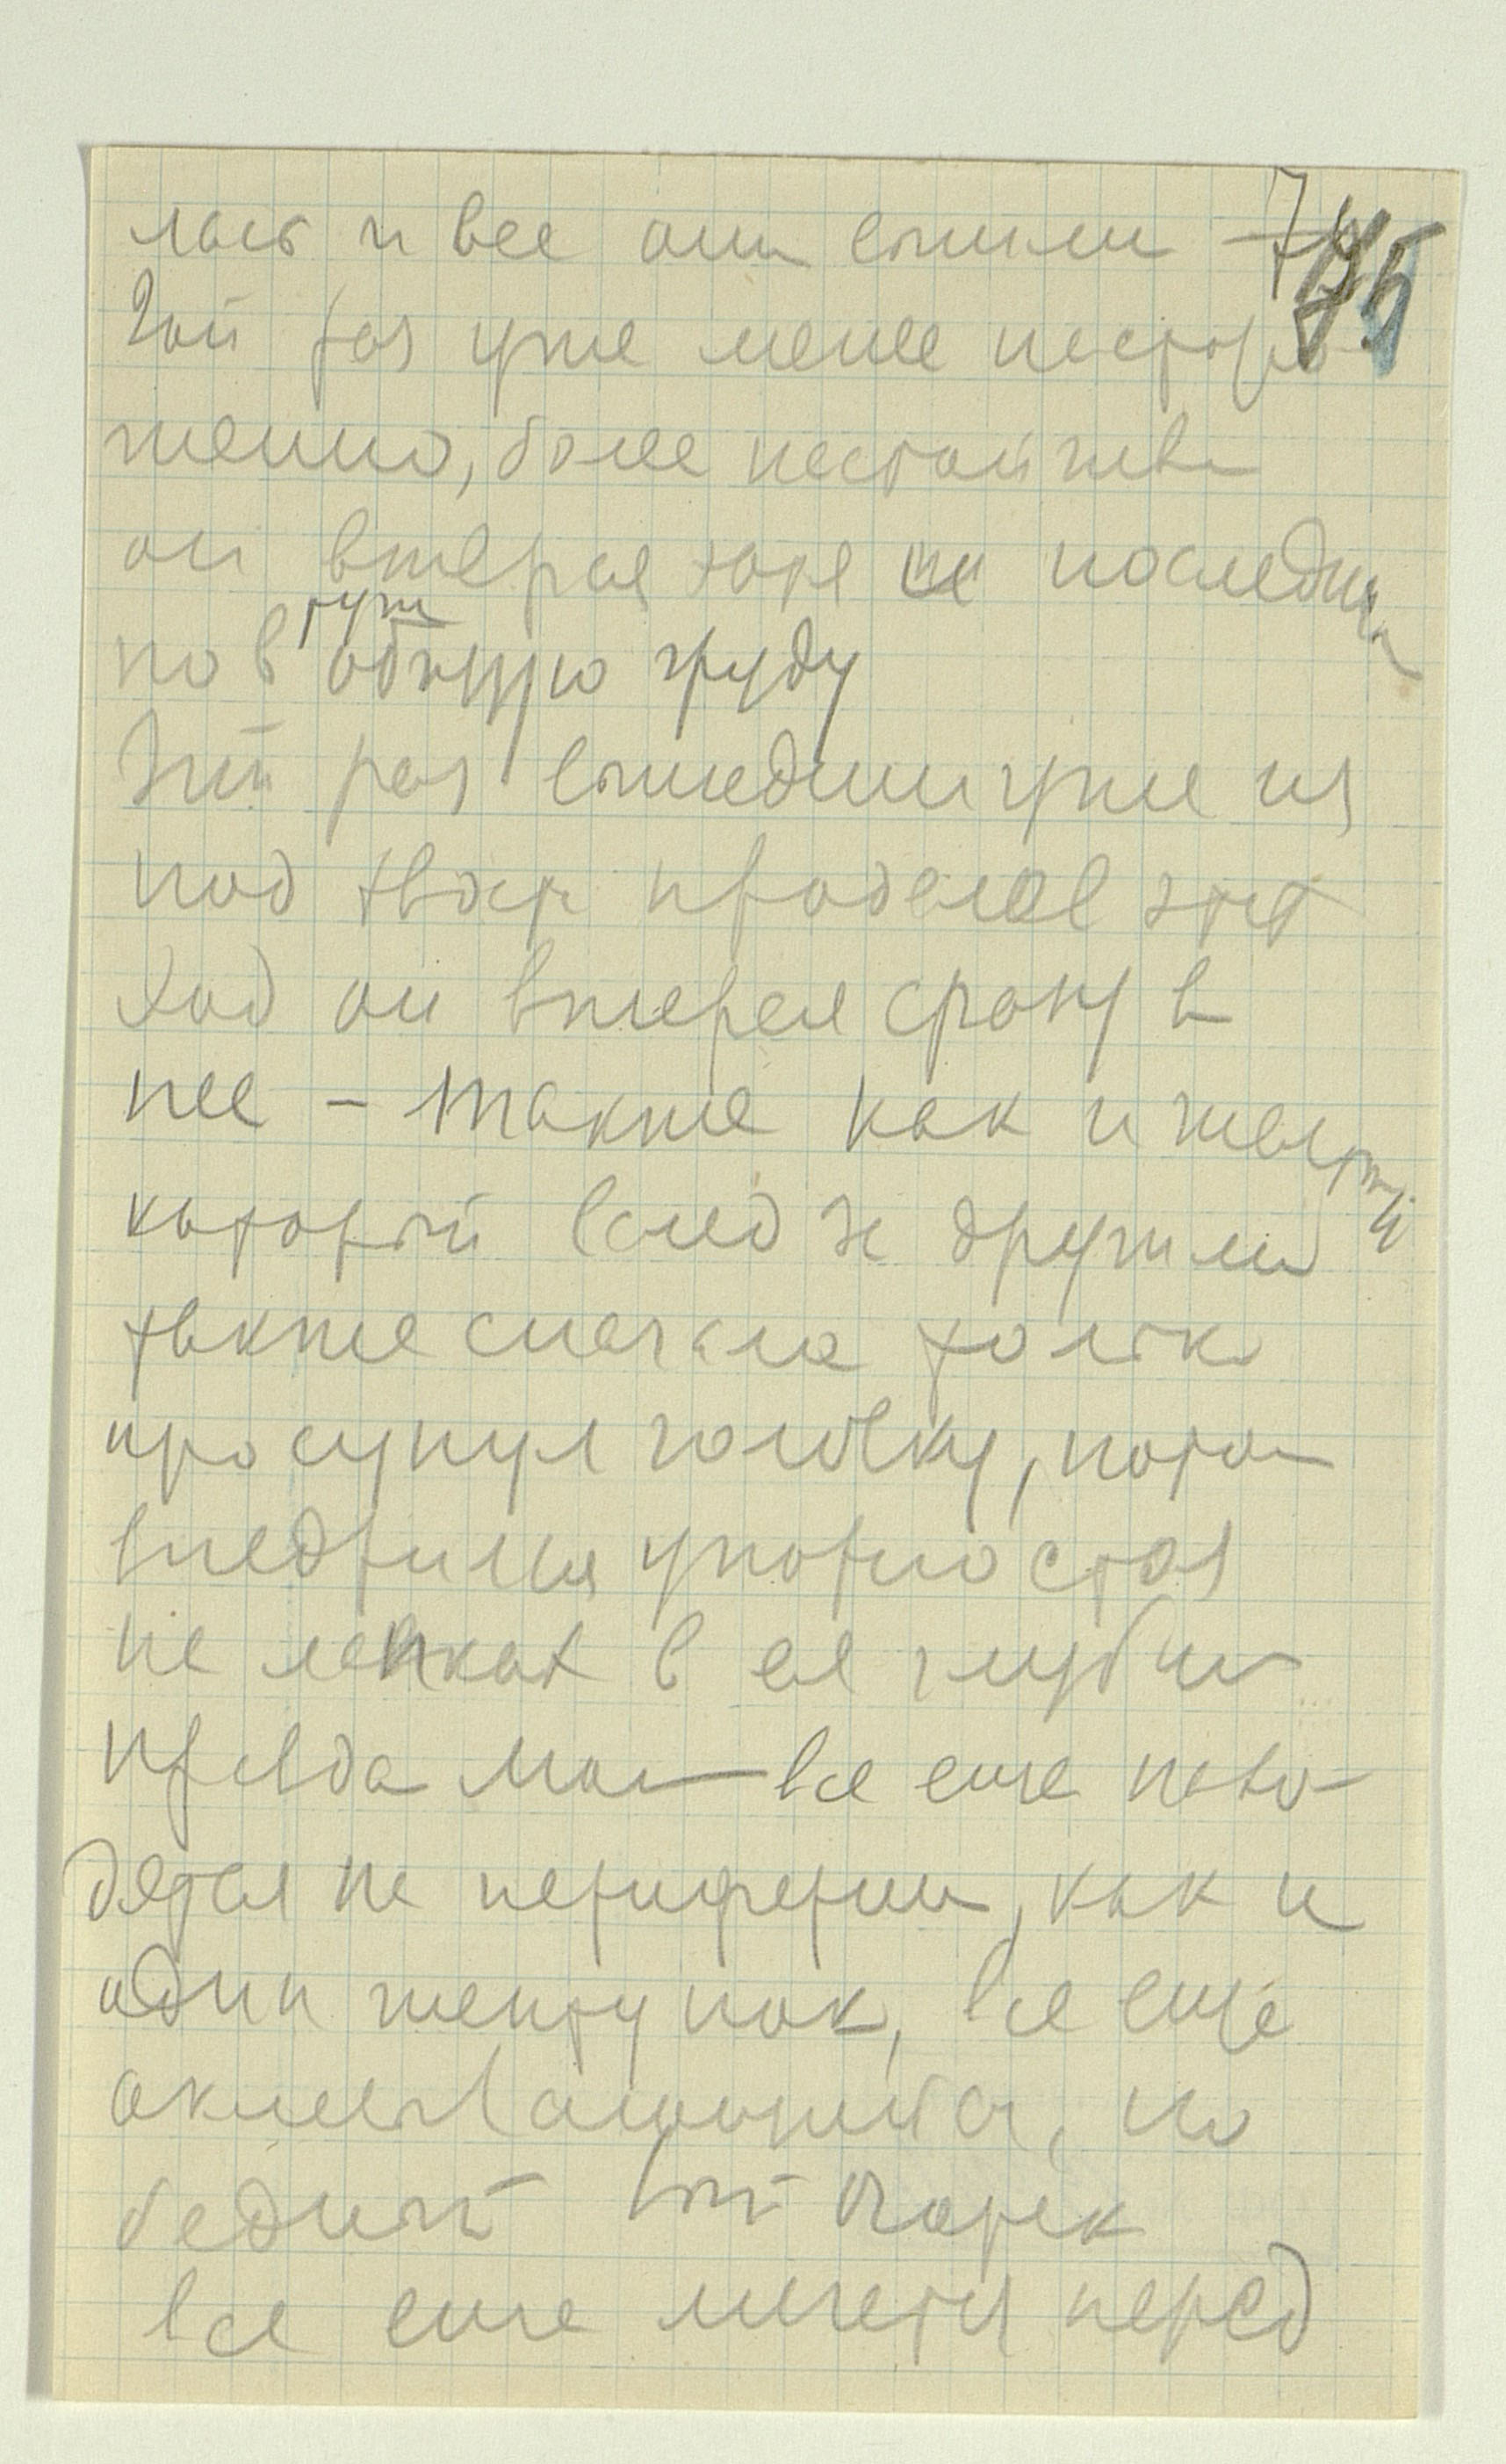 лась и все они вышли 74 75
2ой раз уже менее насторо-
женно, более настойчиво
он вперся хотя не последним
но в
гущу
общую груду
3ий раз вышедши уже из
под проделав этот
ход он вперся сразу в
нее – также как и желтый
который вслед за другими
также сначала только
просунул головку, потом
внедрился упорно стоя
на лапках в ее глубину
правда мои все еще нахо-
дятся на периферии, как и
один желтунок, все еще
но
бедный
все еще мечется перед